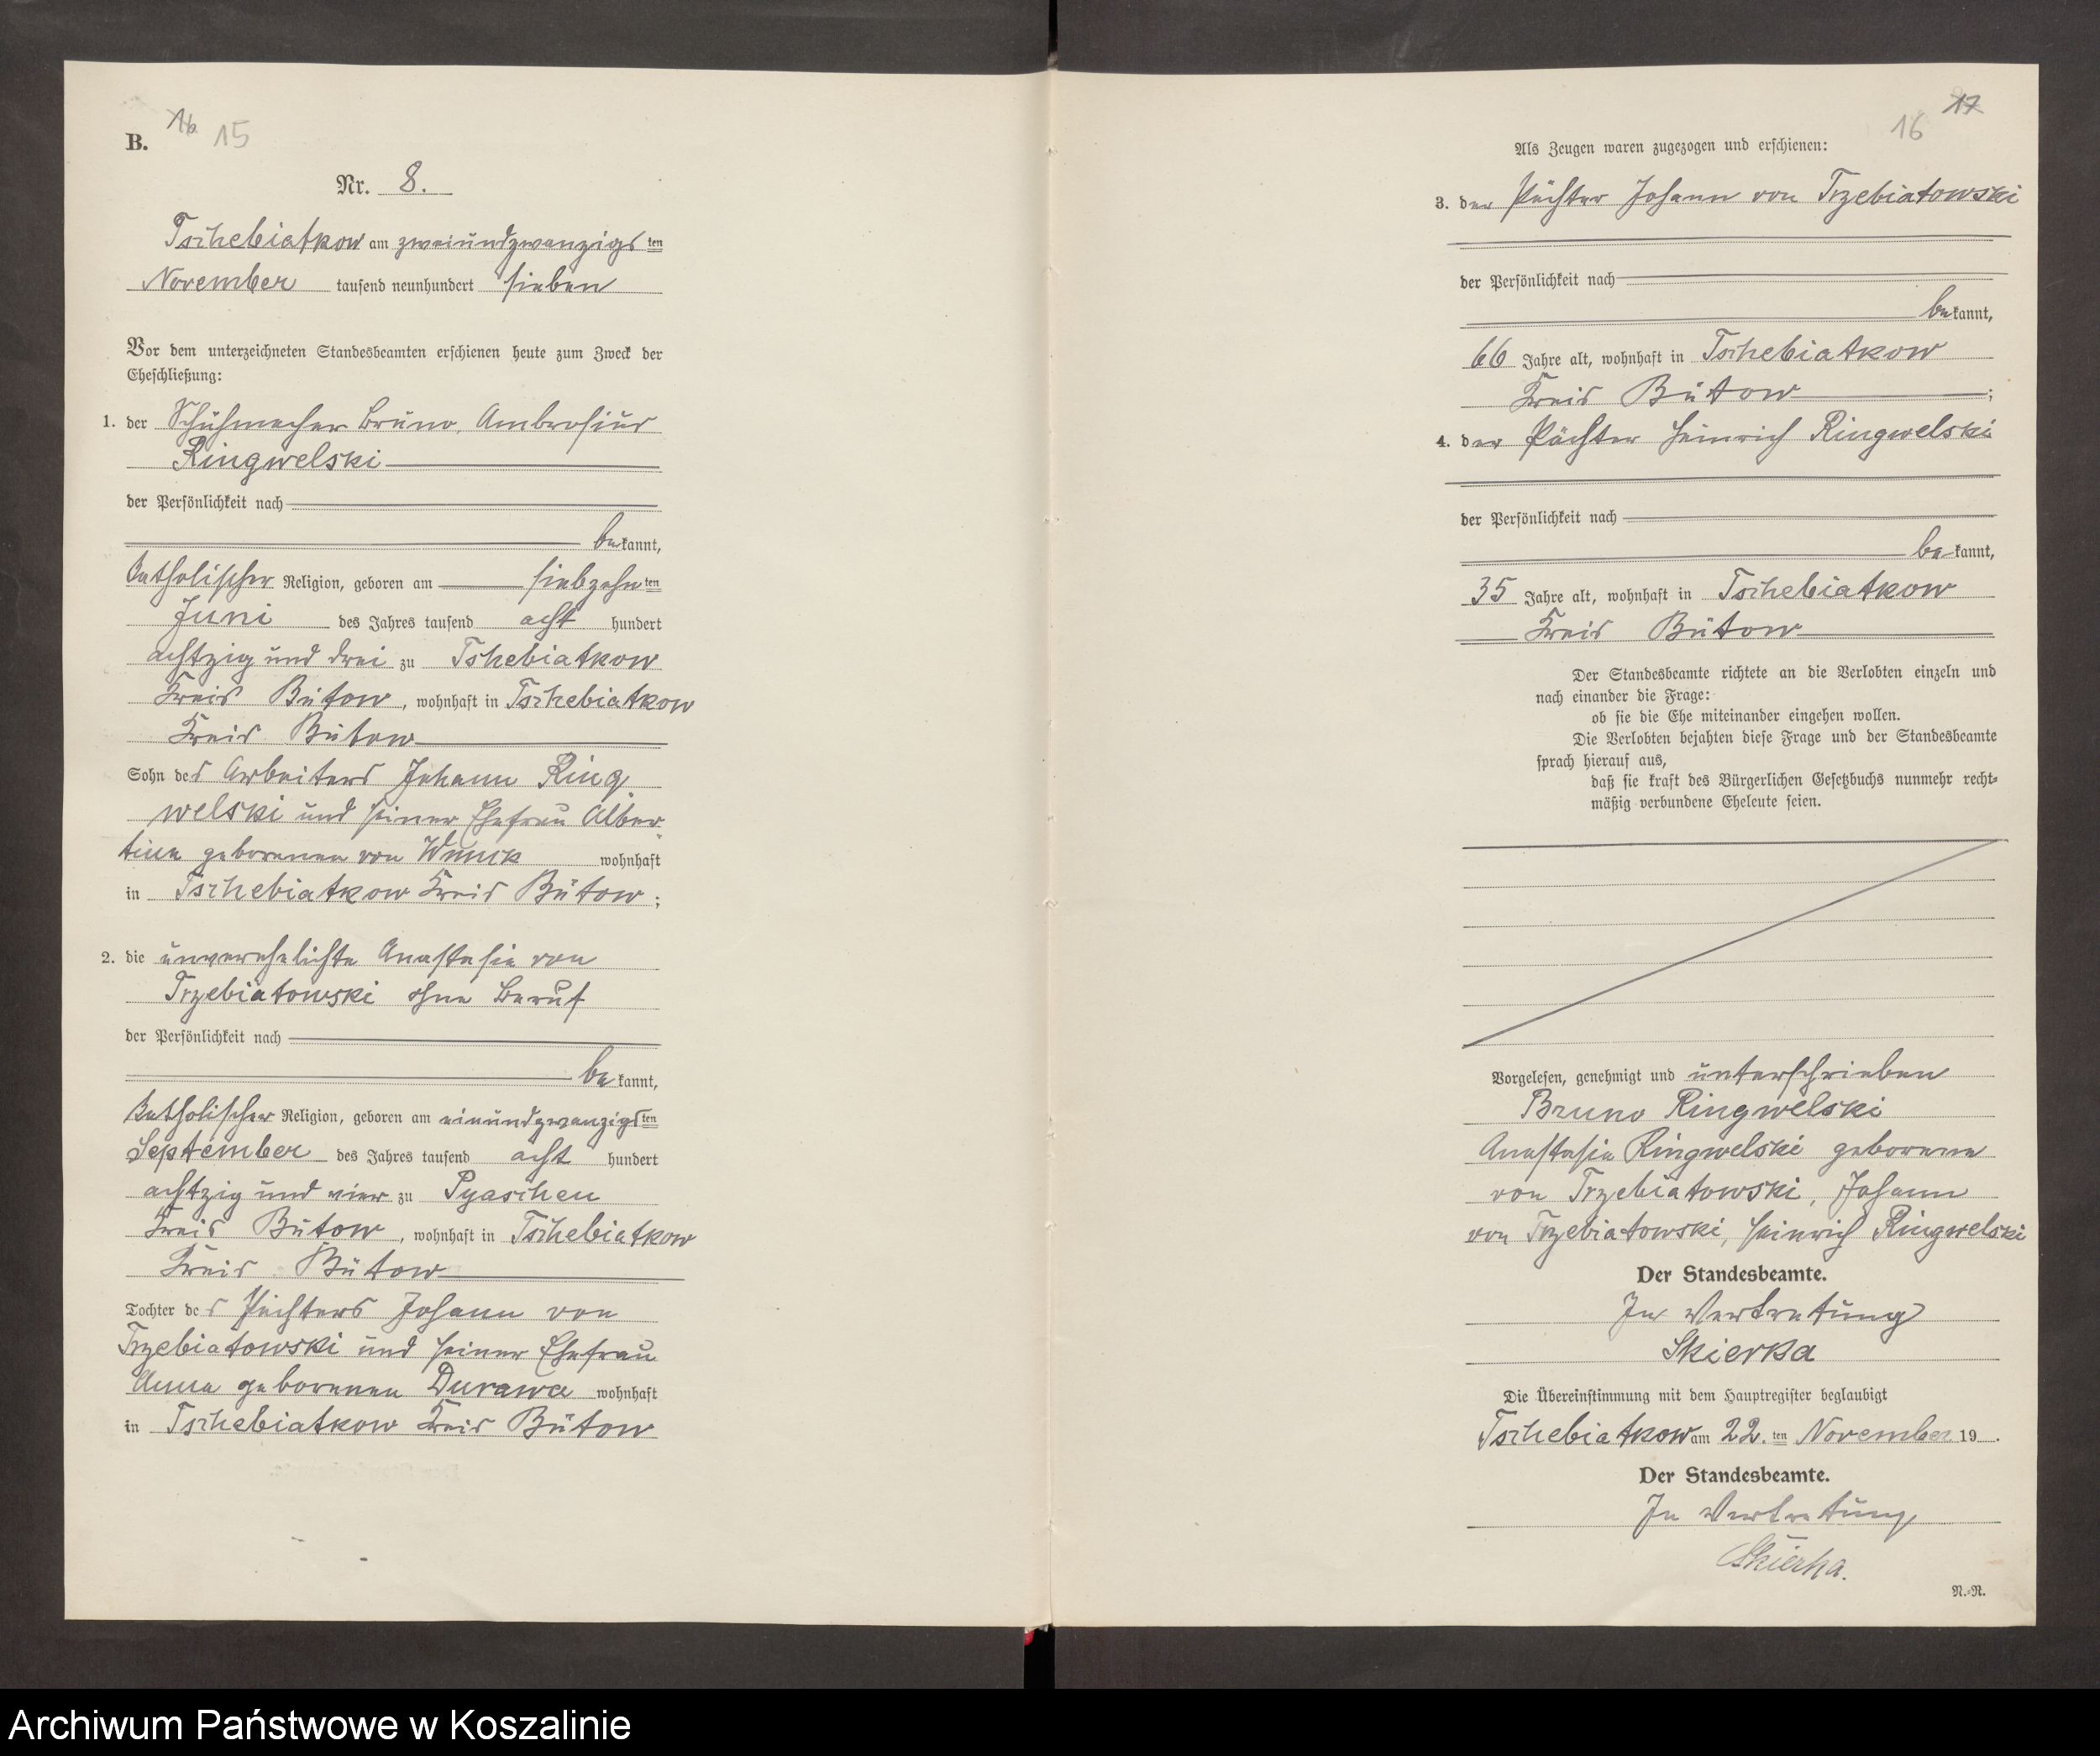 B. 16 15
Nr. 8.
Tschebiatkow am zweiundzwanzigsten
November tausend neunhundert sieben
Vor dem unterzeichneten Standesbeamten erschienen heute zum Zweck der
Eheschließung:
1. der Schuhmacher Bruno Ambrosius
Ringwelski
der Persönlichkeit nach
bekannt,
katholischer Religion, geboren am siebzehnten
Juni des Jahres tausend acht hundert
achtzig und drei zu Tshebiatkow
Kreis Bütow, wohnhaft in Tschebiatkow
Kreis Bütow
Sohn des Arbeiters Johann Ring
welski und seiner Ehefrau Alber
tine geborenen von wohnhaft
in Tschebiatkow Kreis Bütow;
2. die unverehelichte Anastasia von
Trzebiatowski ohne Beruf
der Persönlichkeit nach
bekannt,
katholischer Religion, geboren am einundzwanzigsten
September des Jahres tausend acht hundert
achtzig und vier zu Pyaschen
Kreis Bütow, wohnhaft in Tschebiatkow
Kreis Bütow
Tochter des Pächters Johann von
Trzebiatowski und seiner Ehefrau
Anna geborenen Durawa wohnhaft
in Tschebiatkow Kreis Bütow
16 17
Als Zeugen waren zugezogen und erschienen:
3. der Pächter Johann von Trzebiatowski
der Persönlichkeit nach
bekannt,
66 Jahre alt, wohnhaft in Tschebiatkow
Kreis Bütow;
4. der Pächter Heinrich Ringwelski
der Persönlichkeit nach
bekannt,
35 Jahre alt, wohnhaft in Tschebiatkow
Kreis Bütow
Der Standesbeamte richtete an die Verlobten einzeln und
nach einander die Frage:
ob sie die Ehe miteinander eingehen wollen.
Die Verlobten bejahten diese Frage und der Standesbeamte
sprach hierauf aus,
daß sie kraft des Bürgerlichen Gesetzbuchs nunmehr recht-
mäßig verbundene Eheleute seien.
Vorgelesen, genehmigt und unterschrieben
Bruno Ringwelski
Anastasia Ringwelski geborene
von Trzebiatowski, Johann
von Trzebiatowski, Heinrich Ringwelski
Der Standesbeamte.
In Vertretung
Skierka
Die Übereinstimmung mit dem Hauptregister beglaubigt
Tschebiatkow am 22. ten November 19 .
Der Standesbeamte.
In Vertretung
Skierka.
N.-R.
Archiwum Państwowe w Koszalinie